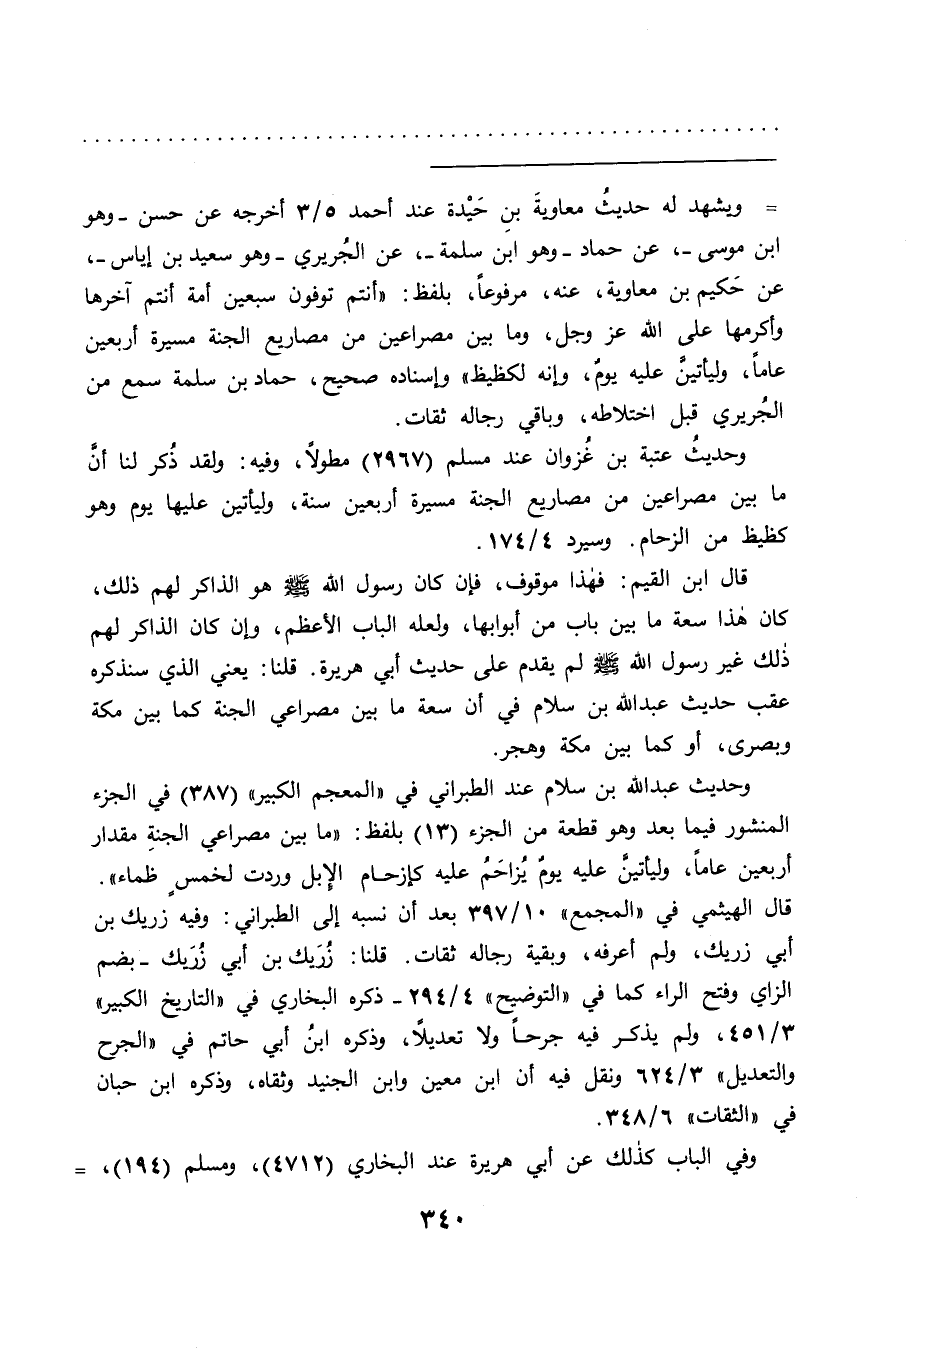 = ويشهد له حديثُ معاويةَ بنِ حَيْدة عند أحمد ٣/٥ أخرجه عن حسن ـ وهو
ابن موسى ـ، عن حماد ـ وهو ابن سلمة ـ، عن الجُريري ـ وهو سعيد بن إياس ـ،
عن حَكيم بن معاوية، عنه، مرفوعاً، بلفظ: «أنتم توفون سبعين أمة أنتم آخرها
وأكرمها على الله عز وجل، وما بين مصراعين من مصاريع الجنة مسيرة أربعين
عاماً، وليأتينَّ عليه يومٌ، وإنه لكظيظ» وإسناده صحيح، حماد بن سلمة سمع من
الجُريري قبل اختلاطه، وباقي رجاله ثقات.
وحديثُ عتبة بن غُزوان عند مسلم (٢٩٦٧) مطولاً، وفيه: ولقد ذُكر لنا أنَّ
ما بين مصراعين من مصاريع الجنة مسيرة أربعين سنة، وليأتين عليها يوم وهو
كظيظ من الزحام. وسيرد ١٧٤/٤.
قال ابن القيم: فهٰذا موقوف، فإن كان رسول الله ﷺ هو الذاكر لهم ذلك،
كان هٰذا سعة ما بين باب من أبوابها، ولعله الباب الأعظم، وإن كان الذاكر لهم
ذٰلك غير رسول الله ﷺ لم يقدم على حديث أبي هريرة. قلنا: يعني الذي سنذكره
عقب حديث عبدالله بن سلام في أن سعة ما بين مصراعي الجنة كما بين مكة
وبصرى، أو كما بين مكة وهجر.
وحديث عبدالله بن سلام عند الطبراني في «المعجم الكبير» (٣٨٧) في الجزء
المنشور فيما بعد وهو قطعة من الجزء (١٣) بلفظ: «ما بين مصراعي الجنةِ مقدار
أربعين عاماً، وليأتينَّ عليه يومٌ يُزاحَمُ عليه كازحام الإبل وردت لخمسٍ ظماء».
قال الهيثمي في «المجمع» ٣٩٧/١٠ بعد أن نسبه إلى الطبراني: وفيه زريك بن
أبي زريك، ولم أعرفه، وبقية رجاله ثقات. قلنا: زُرَيك بن أبي زُرَيك ـ بضم
الزاي وفتح الراء كما في «التوضيح» ٢٩٤/٤ ـ ذكره البخاري في «التاريخ الكبير»
٤٥١/٣، ولم يذكر فيه جرحاً ولا تعديلاً، وذكره ابنُ أبي حاتم في «الجرح
والتعديل» ٦٢٤/٣ ونقل فيه أن ابن معين وابن الجنيد وثقاه، وذكره ابن حبان
في «الثقات» ٣٤٨/٦.
وفي الباب كذٰلك عن أبي هريرة عند البخاري (٤٧١٢)، ومسلم (١٩٤)، =
٣٤٠